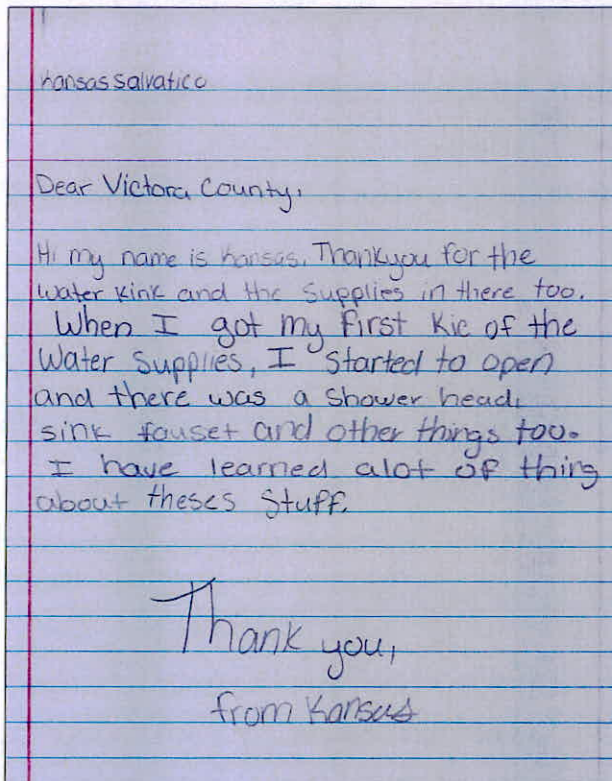 Kansas Salvatico
Dear Victora County,
Hi my name is Kansas. Thankyou for the
water kink and the supplies in there too.
When I got my first Kic of the
Water Supplies, I started to open
and there was a shower head,
sink fauset and other things too.
I have learned alot of thing
about theses Stuff.
Thank you,
from Kansas